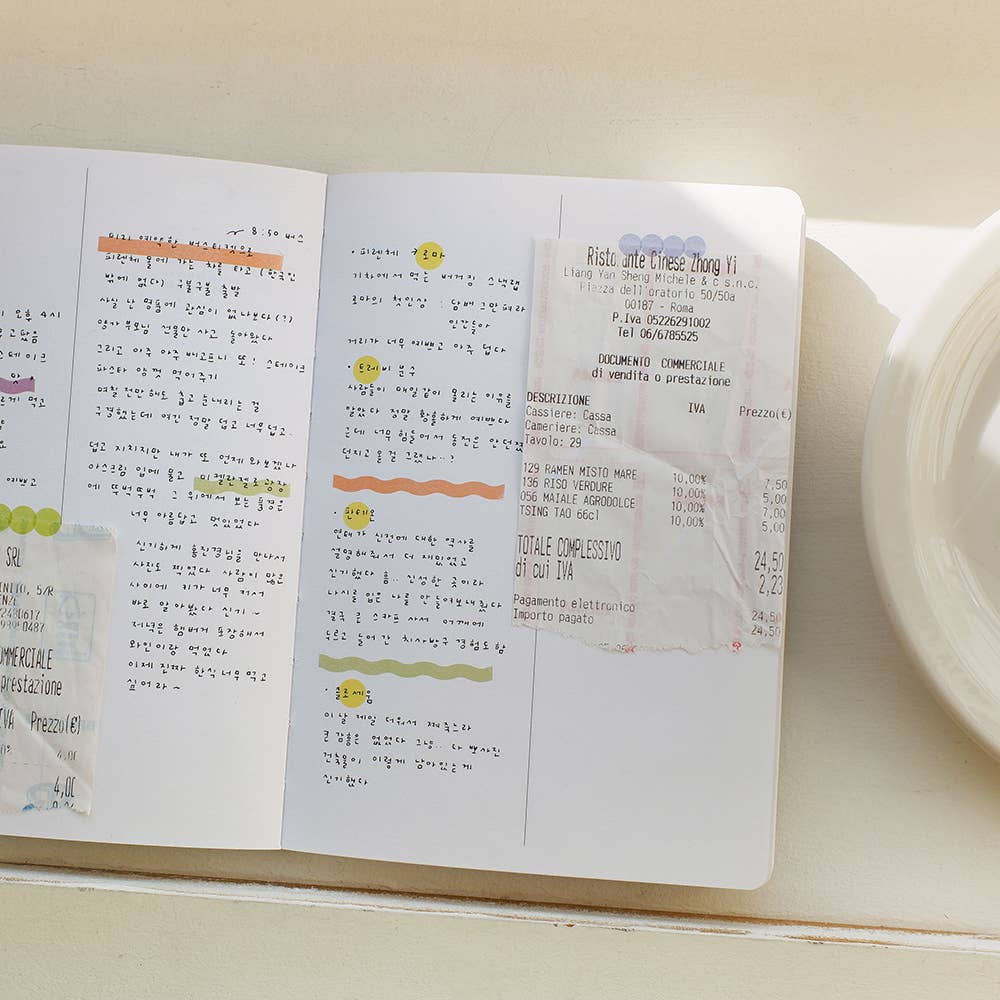 오후 4시
맛
먹고
예쁘고
SRL
5/R
2480617
0487
OMMERCIALE
prestazione
IVA Prezzo(€)
4,00
4,00
8:50 버스
미리 예약한 버스티켓으로
피렌체 몰에 가는 차를 타고 (한국인
밖에 없다) 구불구불 출발
사실 난 명품에 관심이 없나보다(?)
양가부모님 선물만 사고 돌아왔다
그리고 아주 아주 배고프니 또! 스테이크
파스타 양껏 먹어주기
며칠전만해도 춥고 눈내리는 걸
구경했는데 여긴 정말 덥고 너무덥고.
덥고 지치지만 내가 또 언제 와보겠나
아스크림 입에 물고 미켈란젤로광장
에 뚜벅뚜벅 그 위에서 보는 풍경은
너무 아름답고 멋있었다
신기하게 홍진경님을 만나서
사진도 찍었다 사람이 많은
사이에 키가 너무 커서
바로 알아봤다 신기~
저녁은 햄버거 포장해서
와인이랑 먹었다
이제 진짜 한식 너무 먹고
싶어라~
· 피렌체 → 로마
기차에서 먹은 버거킹 스낵랩
로마의 첫인상 : 담배 그만펴라
인간들아
거리가 너무 예쁘고 아주 덥다
· 트레비 분수
사람들이 매일같이 몰리는 이유를
알았다 정말 황홀하게 예쁘다
근데 너무 힘들어서 동전은 안던졌
던지고 올걸 그랬나..?
· 판테온
언테가 신전에 대한 역사를
설명해줘서 더 재밌었고
신기했다 흠.. 신성한 곳이라
나시를 입은 나를 안들여보내줬다
결국 은 스카프 사서 어깨에
두르고 들어간 치사방구 경험도 함
· 콜로세움
이날 제일 더워서 쪄죽느라
큰 감흥은 없었다 그냥.. 다 뽀사진
건축물이 이렇게 남아있는게
신기했다
Ristorante Cinese Zhong Yi
Liang Yan Sheng Michele & c s.n.c.
Piazza dell'oratorio 50/50a
00187 - Roma
P.Iva 05226291002
Tel 06/6785525
DOCUMENTO COMMERCIALE
di vendita o prestazione
DESCRIZIONE IVA Prezzo(€)
Cassiere: Cassa
Cameriere: Cassa
Tavolo: 29
129 RAMEN MISTO MARE 10,00% 7,50
136 RISO VERDURE 10,00% 5,00
056 MAIALE AGRODOLCE 10,00% 7,00
TSING TAO 66cl 10,00% 5,00
TOTALE COMPLESSIVO 24,50
di cui IVA 2,23
Pagamento elettronico 24,50
Importo pagato 24,50